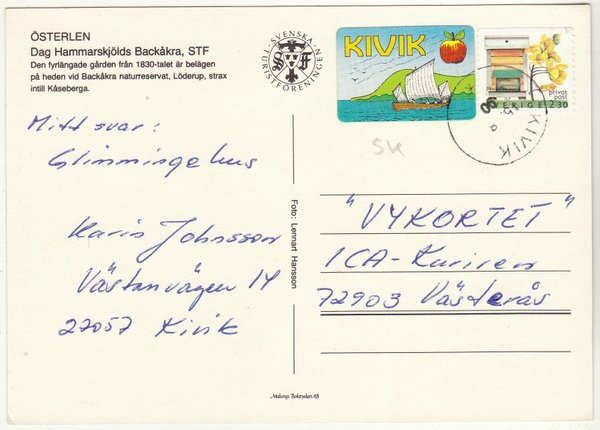 ÖSTERLEN
Dag Hammarskjölds Backåkra, STF
Den fyrlängade gården från 1830-talet är belägen
på heden vid Backåkra naturreservat, Löderup, strax
intill Kåseberga.
SVENSKA
TURISTFÖRENINGEN
KIVIK
privat
post
SVERIGE 2.30
KIVIK
Mitt svar:
Glimmingehus
Karin Johnsson
Västanvägen 14
27057 Kivik
Foto: Lennart Hansson
SK
"VYKORTET"
ICA-Kuriren
72903 Västerås
Malungs Boktryckeri AB